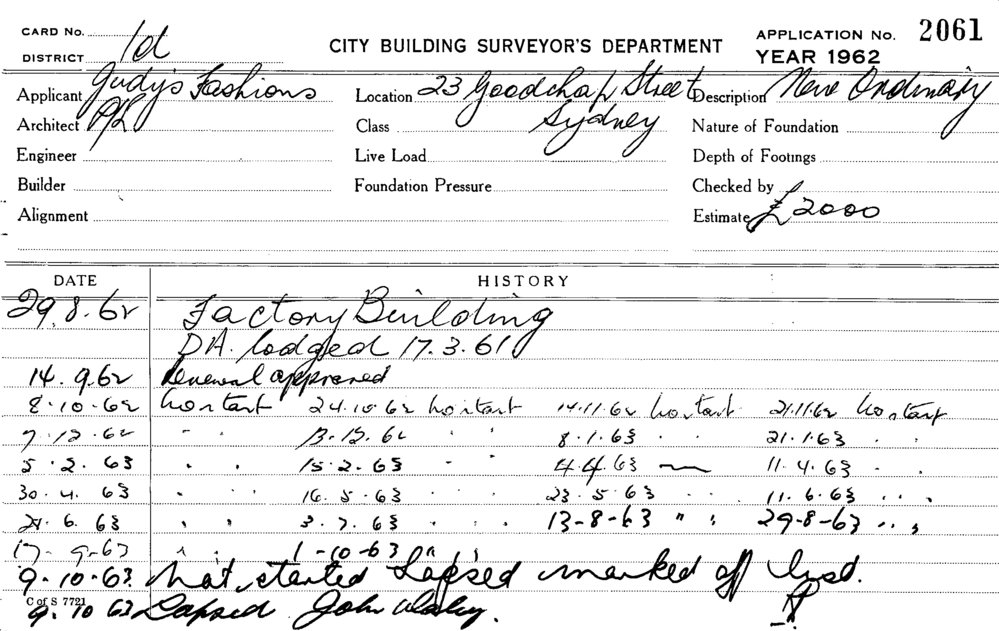 CARD No.
DISTRICT 1d
CITY BUILDING SURVEYOR'S DEPARTMENT
APPLICATION No. 2061
YEAR 1962
Applicant Judy's Fashions Location 23 Goodchap Street Description New Ordinary
Architect P/L Class Sydney Nature of Foundation
Engineer Live Load Depth of Footings
Builder Foundation Pressure Checked by
Alignment Estimate £2000
DATE HISTORY
29.8.62 Factory Building
DA. lodged 17.3.61
14.9.62 Renewal approved
8.10.62 No start 24.10.62 No start 14.11.62 No start 21.11.62 No start
7.12.62 " " 13.12.62 " " 8.1.63 " " 21.1.63 " "
5.2.63 " " 15.2.63 " " 4.4.63 11.4.63 " "
30.4.63 " " 16.5.63 " " 23.5.63 " " 11.6.63 " "
6.63 " " 3.7.63 " " 13-8-63 " " 29-8-63 " "
17-9-63 " " 1-10-63 " "
9.10.63 Not started Lapsed marked off
C of S 7721
9.10 63 Lapsed John